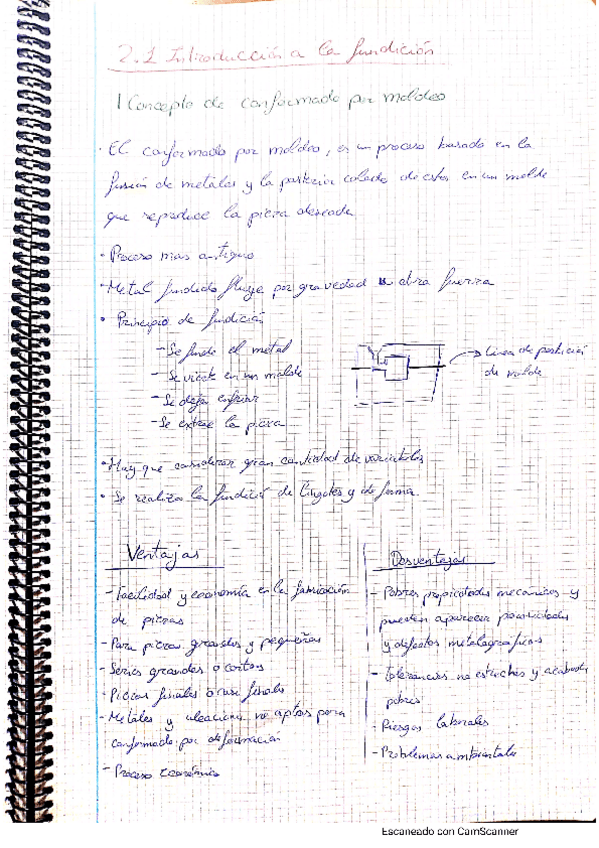 2.1 Introducción a la fundición
1 Concepto de conformado por moldeo
· El conformado por moldeo, es un proceso basado en la
fusión de metales y la posterior colada de estos en un molde
que reproduce la pieza deseada
· Proceso mas antiguo
· Metal fundido fluye por gravedad u otra fuerza
· Principio de fundición
- Se funde el metal
- Se vierte en un molde
- Se deja enfriar
- Se extrae la pieza
→ Linea de partición
de molde
· Hay que considerar gran cantidad de variables
· Se realiza la fundició de lingotes y de forma.
Ventajas
- Facilidad y economía en la fabricación
de piezas
- Para piezas grandes y pequeñas
- Series grandes o cortas
- Piezas finales o casi finales
- Metales y aleaciones no aptos para
conformado por deformación
- Proceso económico
Desventajas
- Pobres propiedades mecanicas y
pueden aparecer porosidades
y defectos metalograficos
- Tolerancias no estrechas y acabados
pobres
- Riesgos laborales
- Problemas ambientales
Escaneado con CamScanner